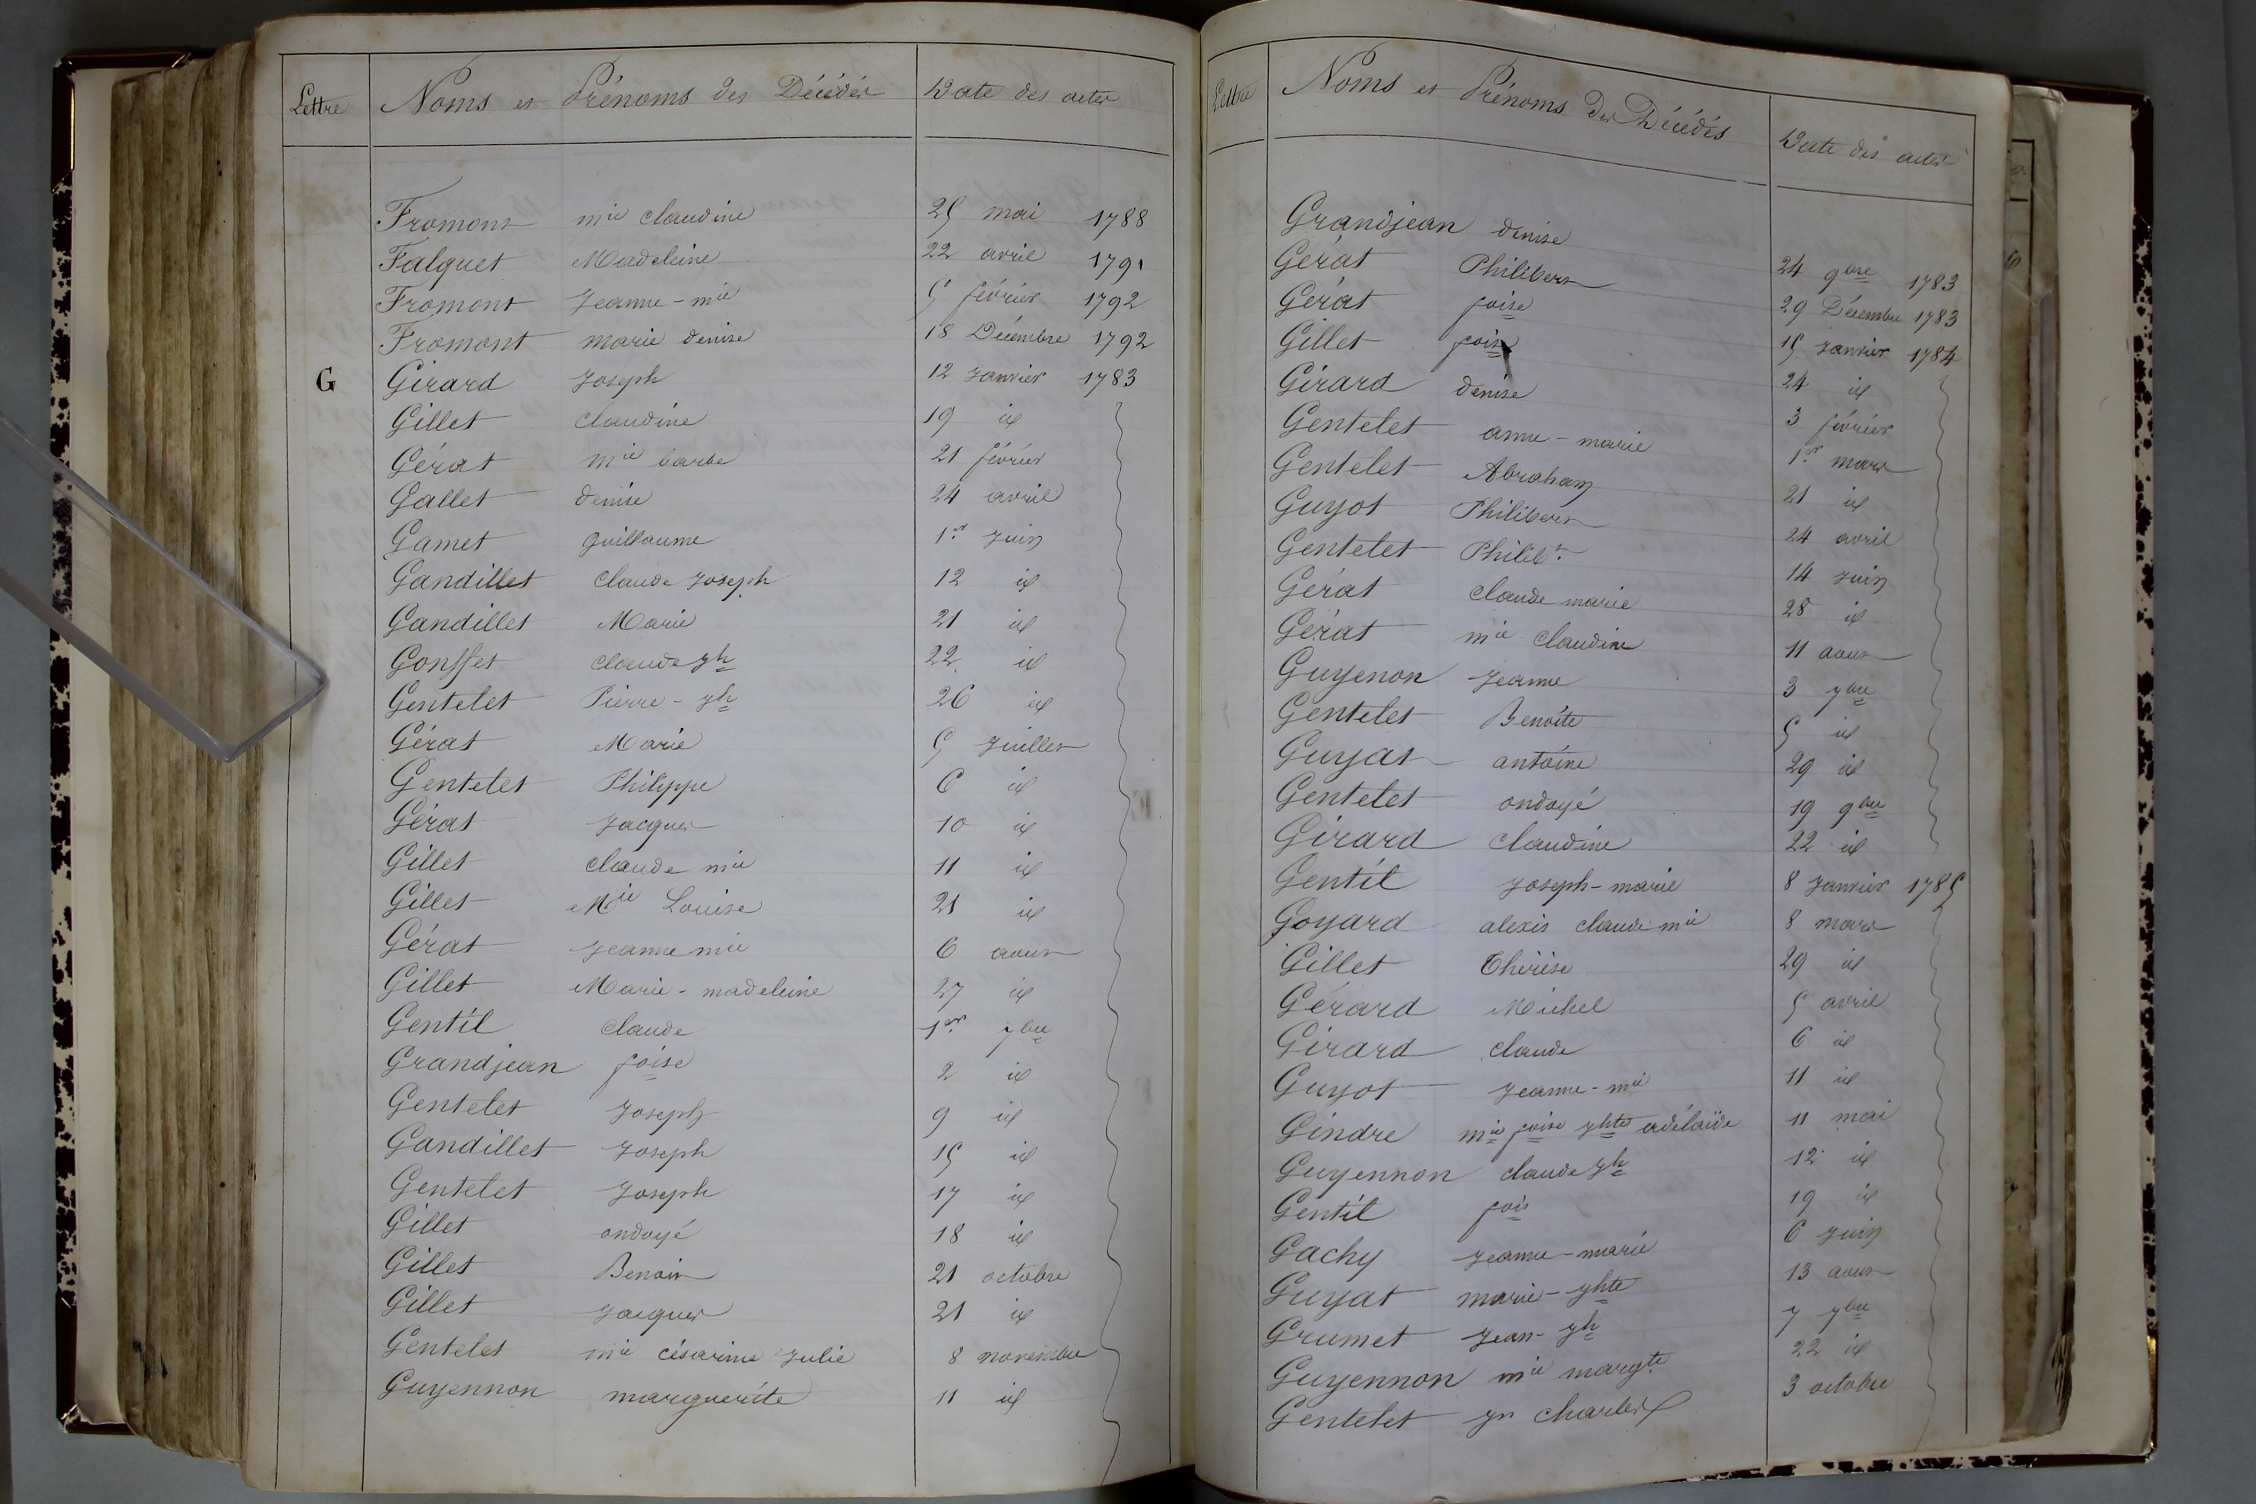 Lettre Noms et Prénoms des Décédés Date des actes
Fromont mie claudine 25 mai 1788
Falquet Madeleine 22 avril 1791
Fromont Jeanne-mie 5 février 1792
Fromont marie denise 18 Décembre 1792
G Girard Joseph 12 Janvier 1783
Gillet Claudine 19 id
Gérat mie barbe 21 février
Gallet denise 24 avril
Gamet guillaume 1er Juin
Gandillet Claude Joseph 12 id
Gandillet Marie 21 id
Gonffet claude jh 22 id
Gentelet Pierre-jh 26 id
Gérat Marie 5 Juillet
Gentelet Philippe 6 id
Gérat Jacques 10 id
Gillet claude mie 11 id
Gillet Mie Louise 21 id
Gérat Jeanne mie 6 aout
Gillet Marie-madeleine 27 id
Gentil Claude 1er 7bre
Grandjean foise 2 id
Gentelet Joseph 9 id
Gandillet Joseph 15 id
Gentelet Joseph 17 id
Gillet ondoyé 18 id
Gillet Benoit 21 octobre
Gillet Jacques 21 id
Gentelet mie césarine Julie 8 novembre
Guyennon marguerite 11 id
Lettre Noms et Prénoms des Décédés Date des actes
Grandjean denise 24 9bre 1783
Gérat Philibert 29 Décembre 1783
Gérat foise 15 Janvier 1784
Gillet fois 24 id
Girard denise 3 février
Gentelet anne-marie 1er mars
Gentelet Abraham 21 id
Guyot Philibert 24 avril
Gentelet Philibt. 14 Juin
Gérat claude marie 28 id
Gérat mie claudine 11 aout
Guyenon Jeanne 3 7bre
Gentelet Benoîte 5 id
Guyat antoine 29 id
Gentelet ondoyé 19 9bre
Girard Claudine 22 id
Gentil Joseph-marie 8 Janvier 1785
Goyard alexis claude mie 8 mars
Gillet Thérèse 29 id
Gérard Michel 5 avril
Girard claude 6 id
Guyot Jeanne-mie 11 id
Gindre mie foise jhte adélaïde 11 mai
Guyennon claude jh 12 id
Gentil fois 19 id
Gachy Jeanne-marie 6 Juin
Guyat marie-jhte 13 aout
Grumet Jean-jh 7 7bre
Guyennon mie margte. 22 id
Gentelet jn charles 3 octobre